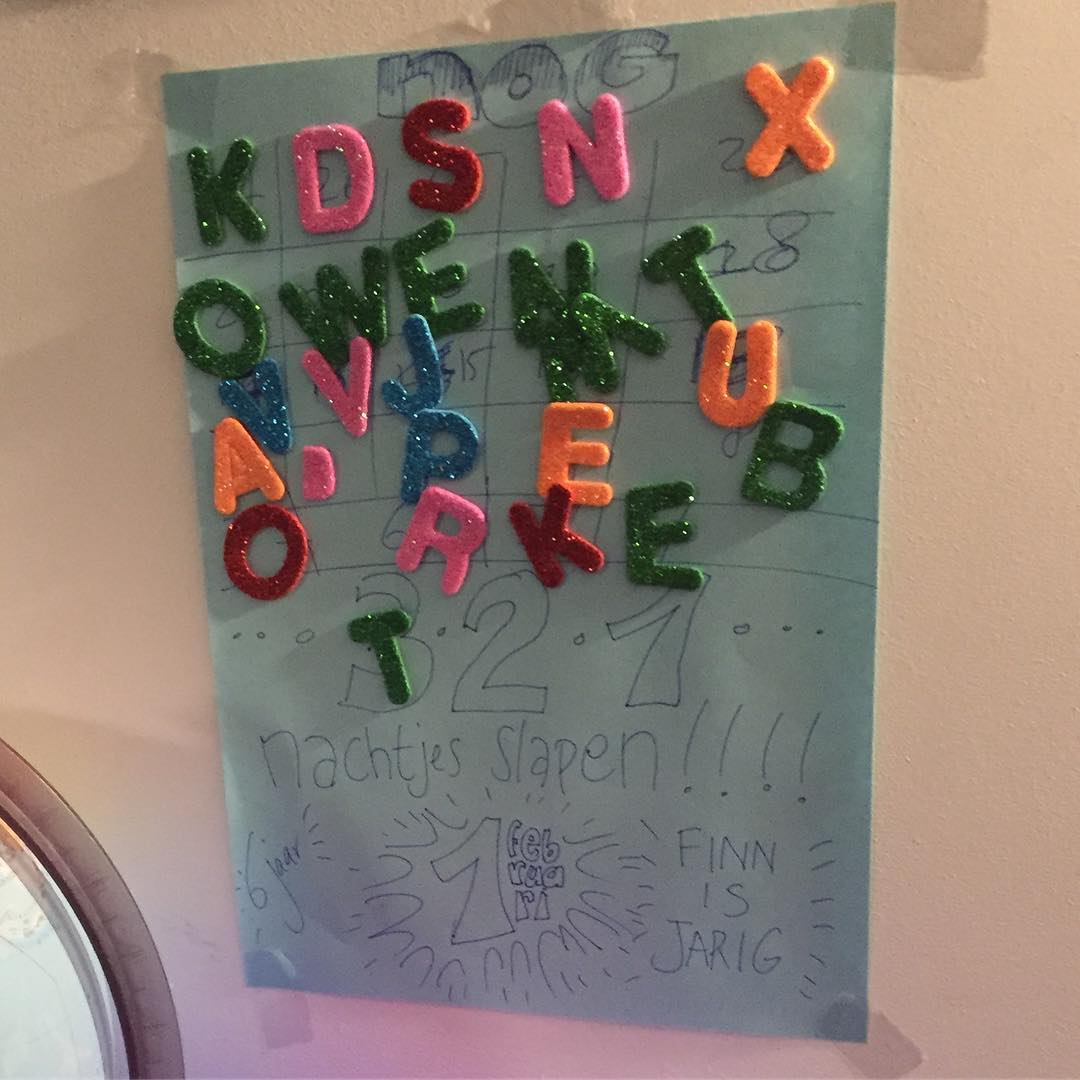 nOG
K D S N X
O W E N T 18
V V J 15 K U
A D P E B
O R K E
T
3 2 1
nachtjes slapen!!!!
6 jaar
1 februari
FINN
IS
JARIG